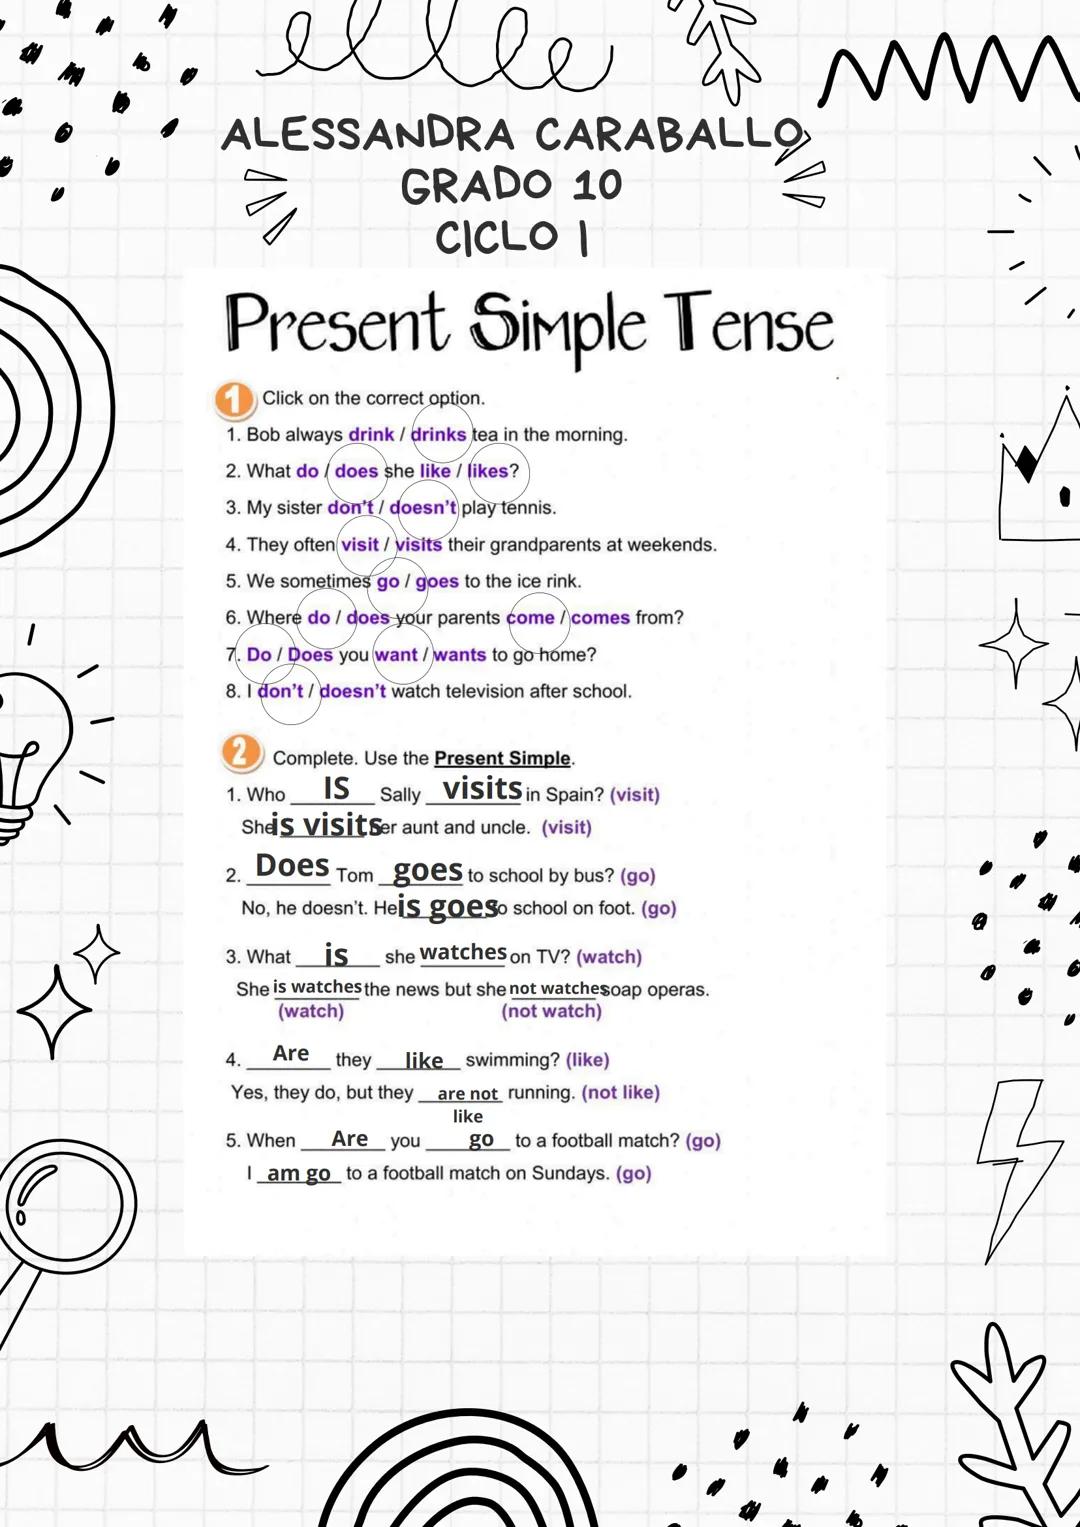 ALESSANDRA CARABALLO
GRADO 10
CICLO I
Present Simple Tense
1 Click on the correct option.
1. Bob always drink / drinks tea in the morning.
2. What do / does she like / likes?
3. My sister don't / doesn't play tennis.
4. They often visit / visits their grandparents at weekends.
5. We sometimes go / goes to the ice rink.
6. Where do / does your parents come / comes from?
7. Do / Does you want / wants to go home?
8. I don't / doesn't watch television after school.
2 Complete. Use the Present Simple.
1. Who IS Sally visits in Spain? (visit)
She is visits er aunt and uncle. (visit)
2. Does Tom goes to school by bus? (go)
No, he doesn't. He is goes o school on foot. (go)
3. What is she watches on TV? (watch)
She is watches the news but she not watches soap operas.
(watch) (not watch)
4. Are they like swimming? (like)
Yes, they do, but they are not running. (not like)
like
5. When Are you go to a football match? (go)
I am go to a football match on Sundays. (go)